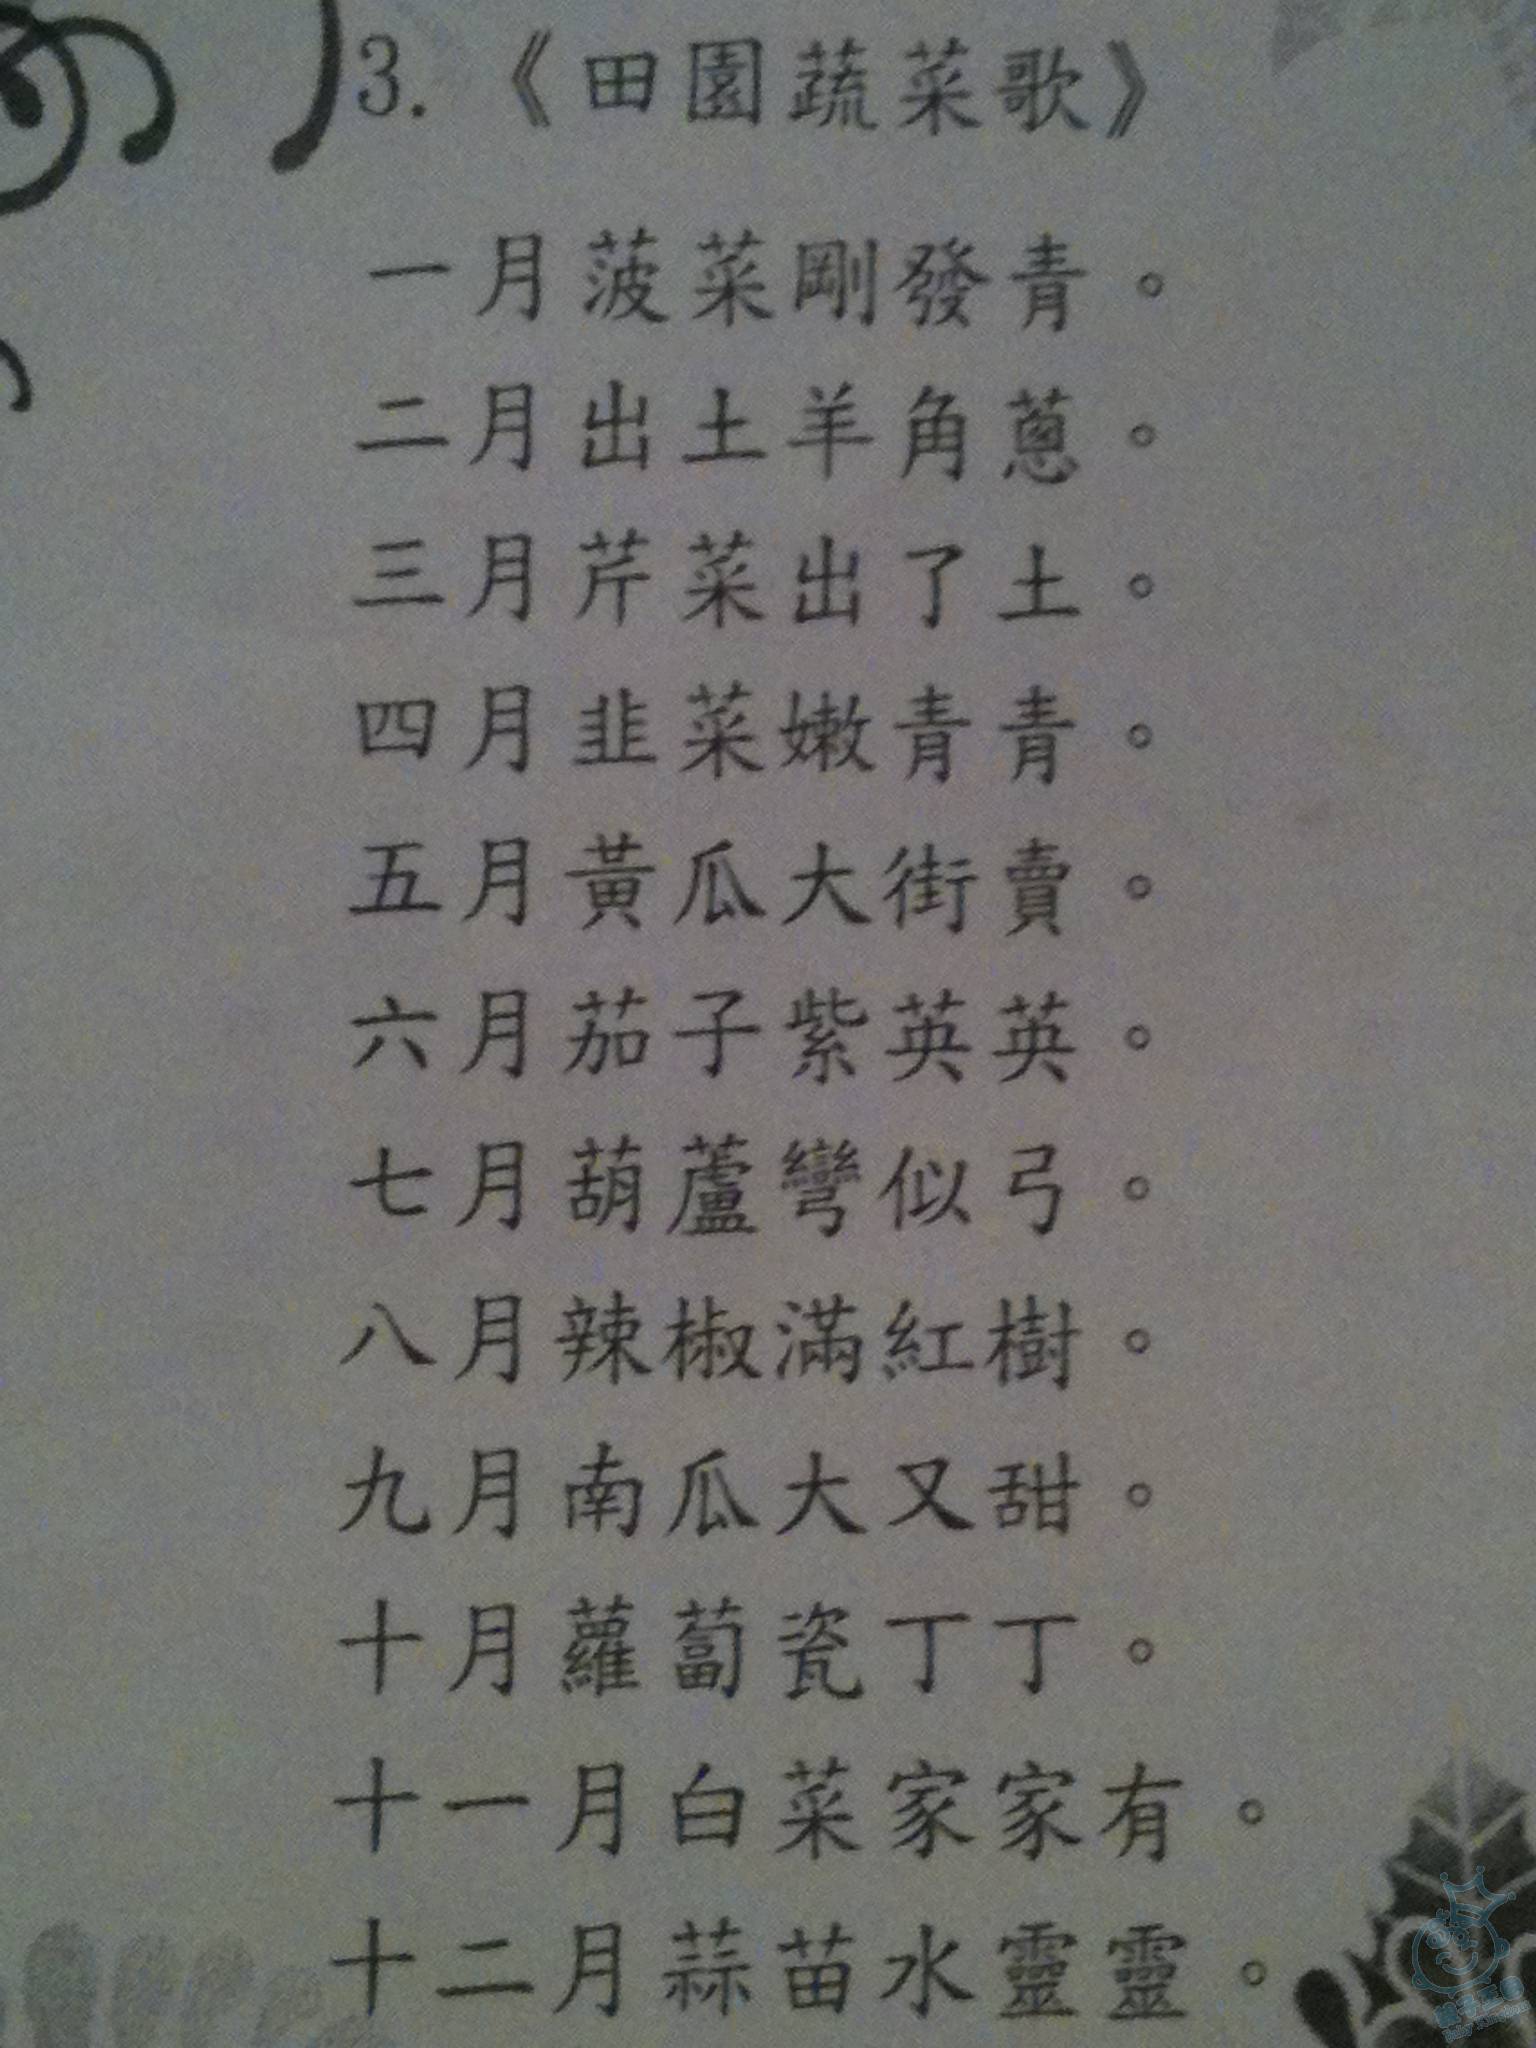 3.《田園蔬菜歌》
一月菠菜剛發青。
二月出土羊角蔥。
三月芹菜出了土。
四月韭菜嫩青青。
五月黃瓜大街賣。
六月茄子紫英英。
七月葫蘆彎似弓。
八月辣椒滿紅樹。
九月南瓜大又甜。
十月蘿蔔瓷丁丁。
十一月白菜家家有。
十二月蒜苗水靈靈。